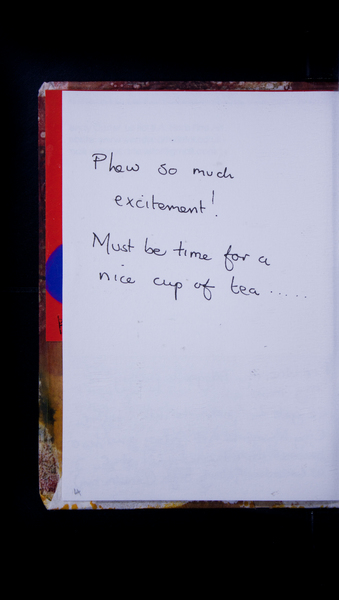 Phew so much
excitement!
Must be time for a
nice cup of tea......